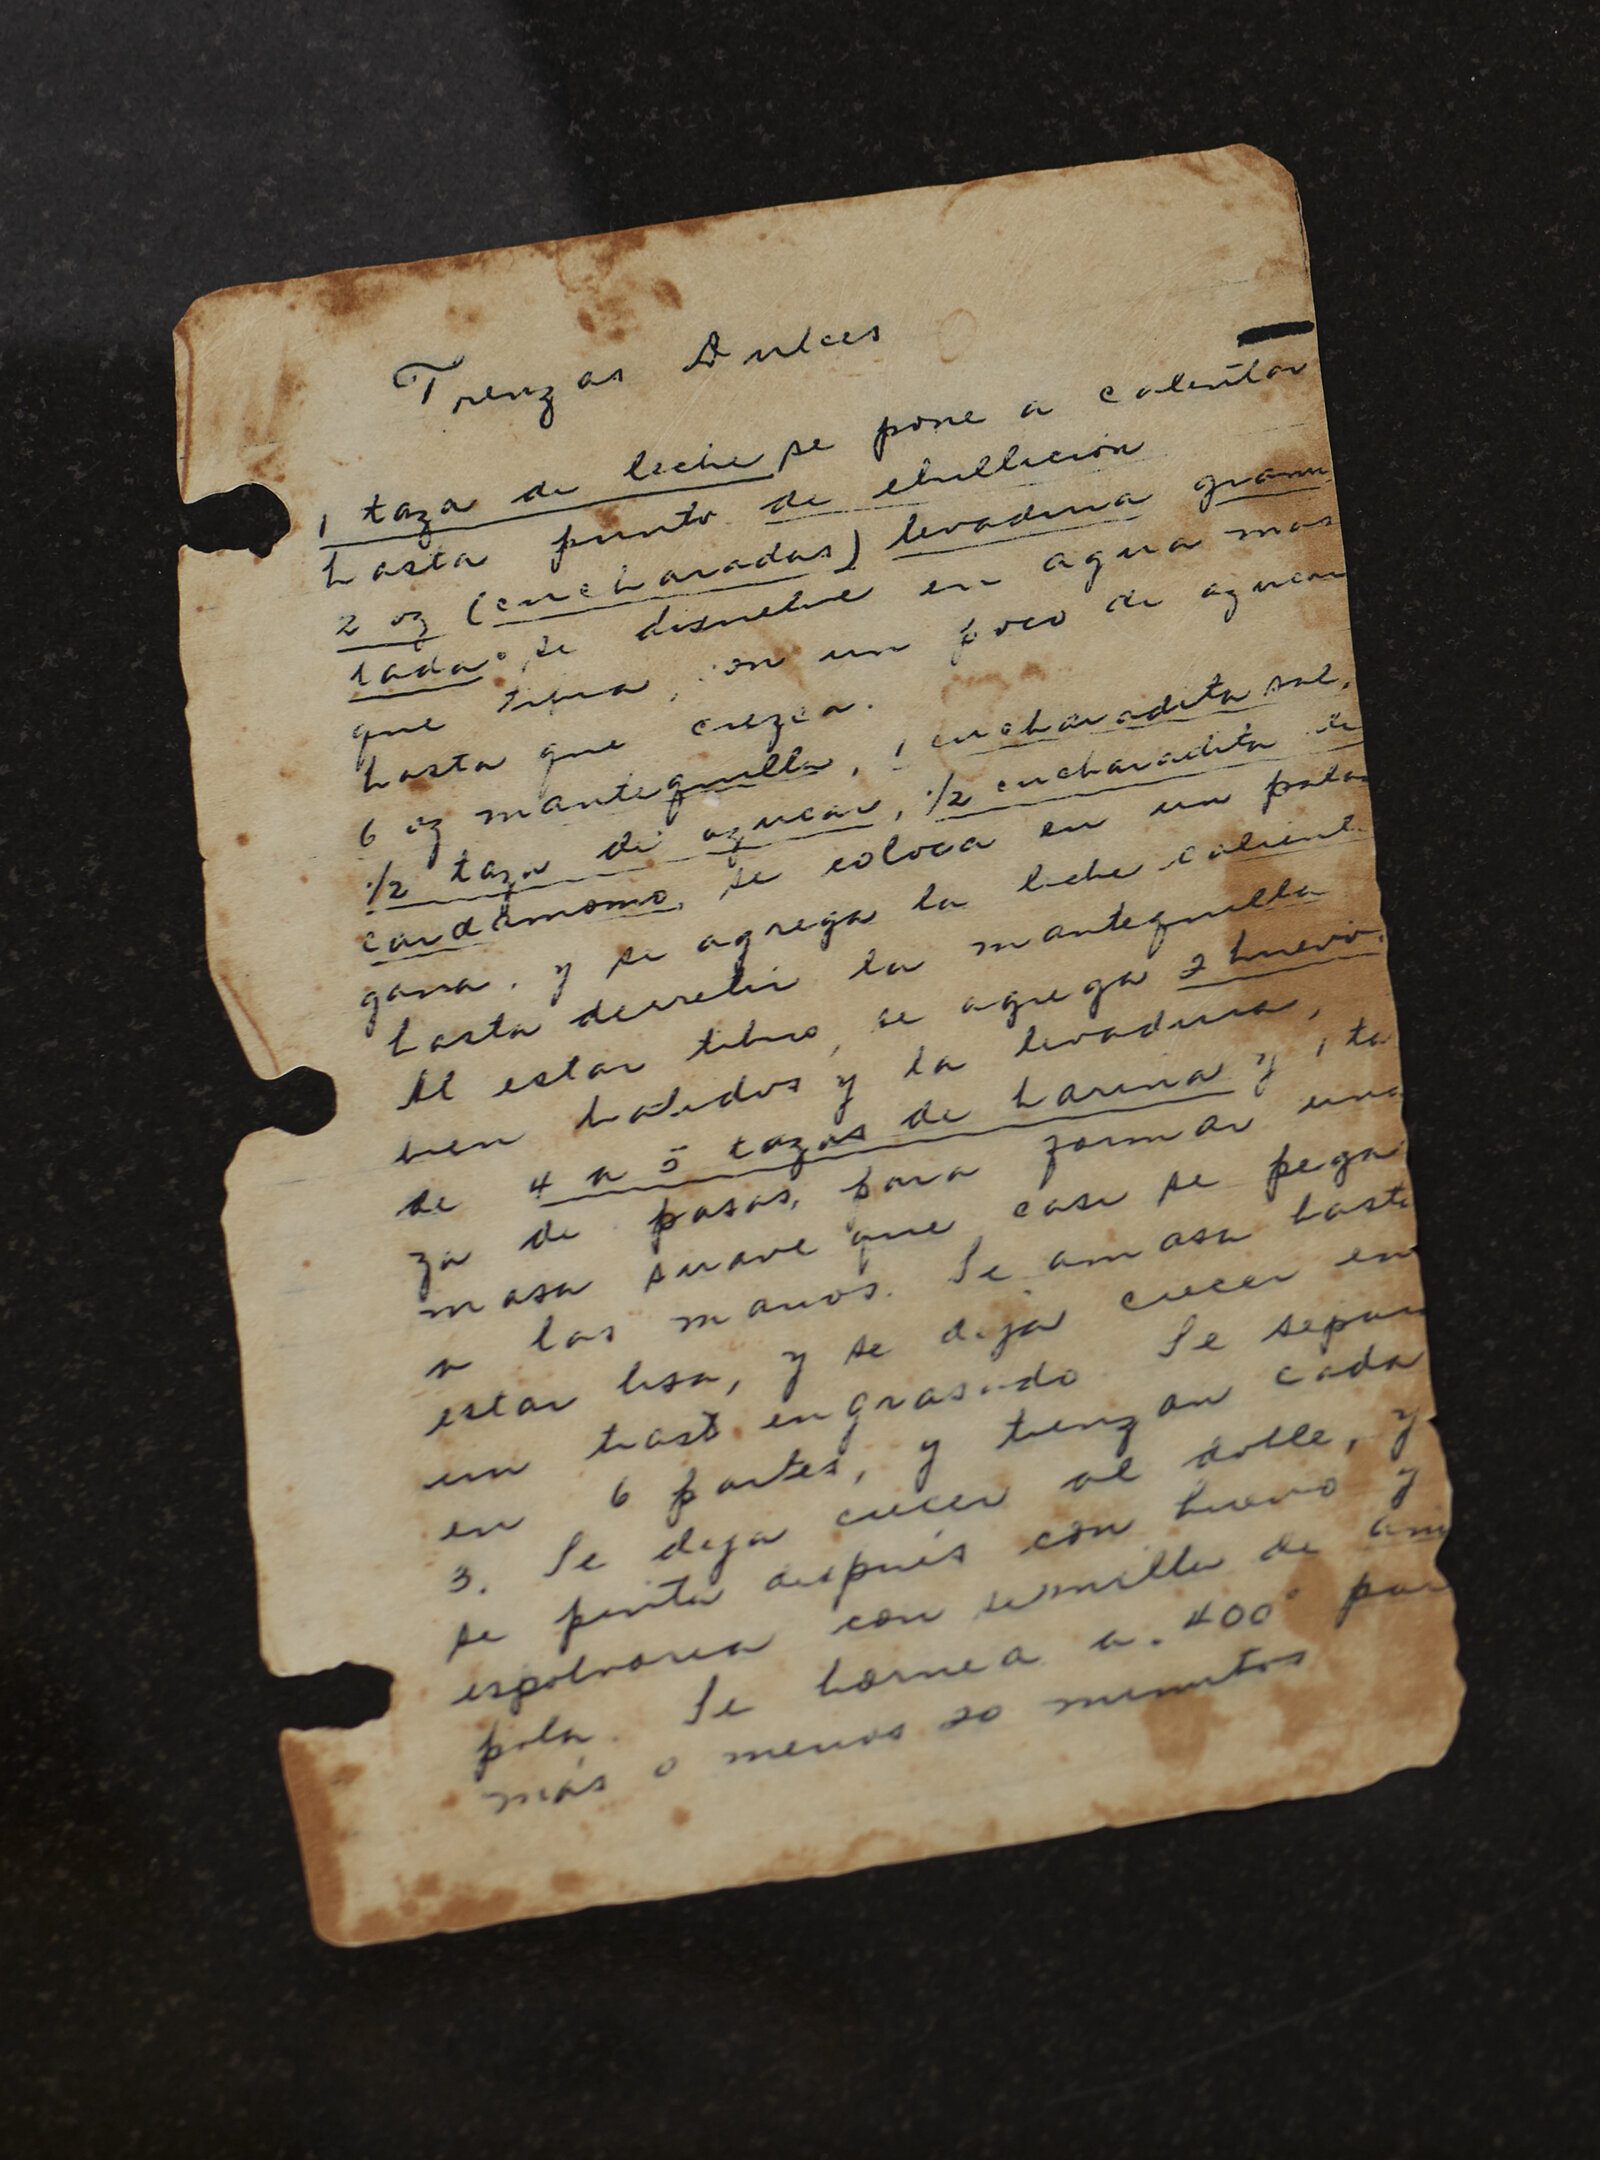 Trenzas Dulces
1 taza de leche se pone a calentar
hasta punto de ebullición
2 oz (cucharadas) levadura granu
lada se disuelve en agua mas
que tibia, con un poco de azucar
hasta que crezca.
6 oz mantequilla, 1 cucharadita sal,
1/2 taza de azucar, 1/2 cucharadita de
cardamomo, se coloca en un palan
gana, y se agrega la leche caliente
hasta derretir la mantequilla
Al estar tibio, se agrega 2 huevos
bien batidos y la levadura,
de 4 a 5 tazas de harina y 1 ta
za de pasas, para formar una
masa suave que casi se pega
a las manos. Se amasa hasta
estar lisa, y se deja crecer en
un trasto engrasado Se separa
en 6 partes, y trenzan cada
3. Se deja crecer al doble, y
se pinta después con huevo y
espolvorea con semilla de ama
pola. Se hornea a 400° por
más o menos 20 minutos